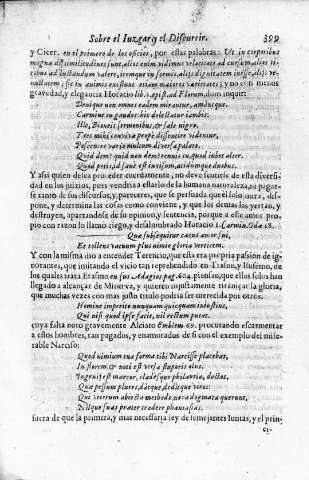 Sobre el Iuzgar, y el Discurrir. 399
y Cicer. en el primero de los oficios, por estas palabras: Ut in corporibus
magnæ dissimilitudines sunt, alios enim vidimus velocitate ad cursum, alios vi-
ribus ad luctandum valere, itemque in formis, alijs dignitatem inesse, alijs ve-
nustatem, sic in animis existunt etiam maiores varietates; y no con menos
gravedad, y elegancia Horacio lib. 2. epist. ad Florum, dum inquit:
Denique non omnes eadem mirantur, amantque.
Carmine tu gaudes: hic delectatur iambis:
Ille, Bioneis sermonibus, & sale nigro.
Tres mihi convivæ propè dissentire videntur,
Poscentes vario multum diversa palato.
Quid dem? quid non dem? renuis tu quod iubet alter.
Quod petis, id sanè est invisum, acidumque duobus.
Y assi quien deixa proceder cuerdamente, no deve sentirse de esta diversi-
dad en los juizios, pues vendria a estarlo de la humana naturaleza, ni pagar-
se tanto de sus discursos, y pareceres, que se persuada que èl solo mira, dis-
pone, y determina las cosas como conviene, y que los demas los yerran, y
destruyen, apartandose de su opinion, y sentencia, porque a este amor pro-
pio con razon lo llamo ciego, y desalumbrado Horatio 1. Carmin. Oda 18.
Quæ subsequitur cæcus amor sui,
Et tollens vacuum plus nimio gloria verticem.
Y con la misma dio a entender Terencio, que esta era propria passion de ig-
norantes, que imitando el vicio tan reprehendido en Trason, y Iusinos, de
los quales trata Erasmo en sus Adagios pag. 604. piensan, que ellos solos han
llegado a alcançar de Minerva, y quieren injustamente tiranizar la gloria,
que muchas vezes con mas justo titulo podria ser merecida por otros.
Homine imperito nunquam quicquam iniustius,
Qui nisi quod ipse facit, nil rectum putat.
cuya falta noto gravemente Alciato Emblem. 69. procurando escarmentar
a estos hombres, tan pagados, y enamorados de si con el exemplo del mise-
rable Narciso:
Quod nimium tua forma tibi Narcisse placebat,
In florem & noti est versa stuporis olus.
Ingenij est marcor, cladesque philautia, doctos,
Quæ pessum plures, datque, deditque viros:
Qui veterum abiecta methodo, nova dogmata quærunt,
Nilque suas præter tradere phantasias.
fuera de que la primera, y mas necessaria ley de semejantes Iuntas, y el prin-
ci-